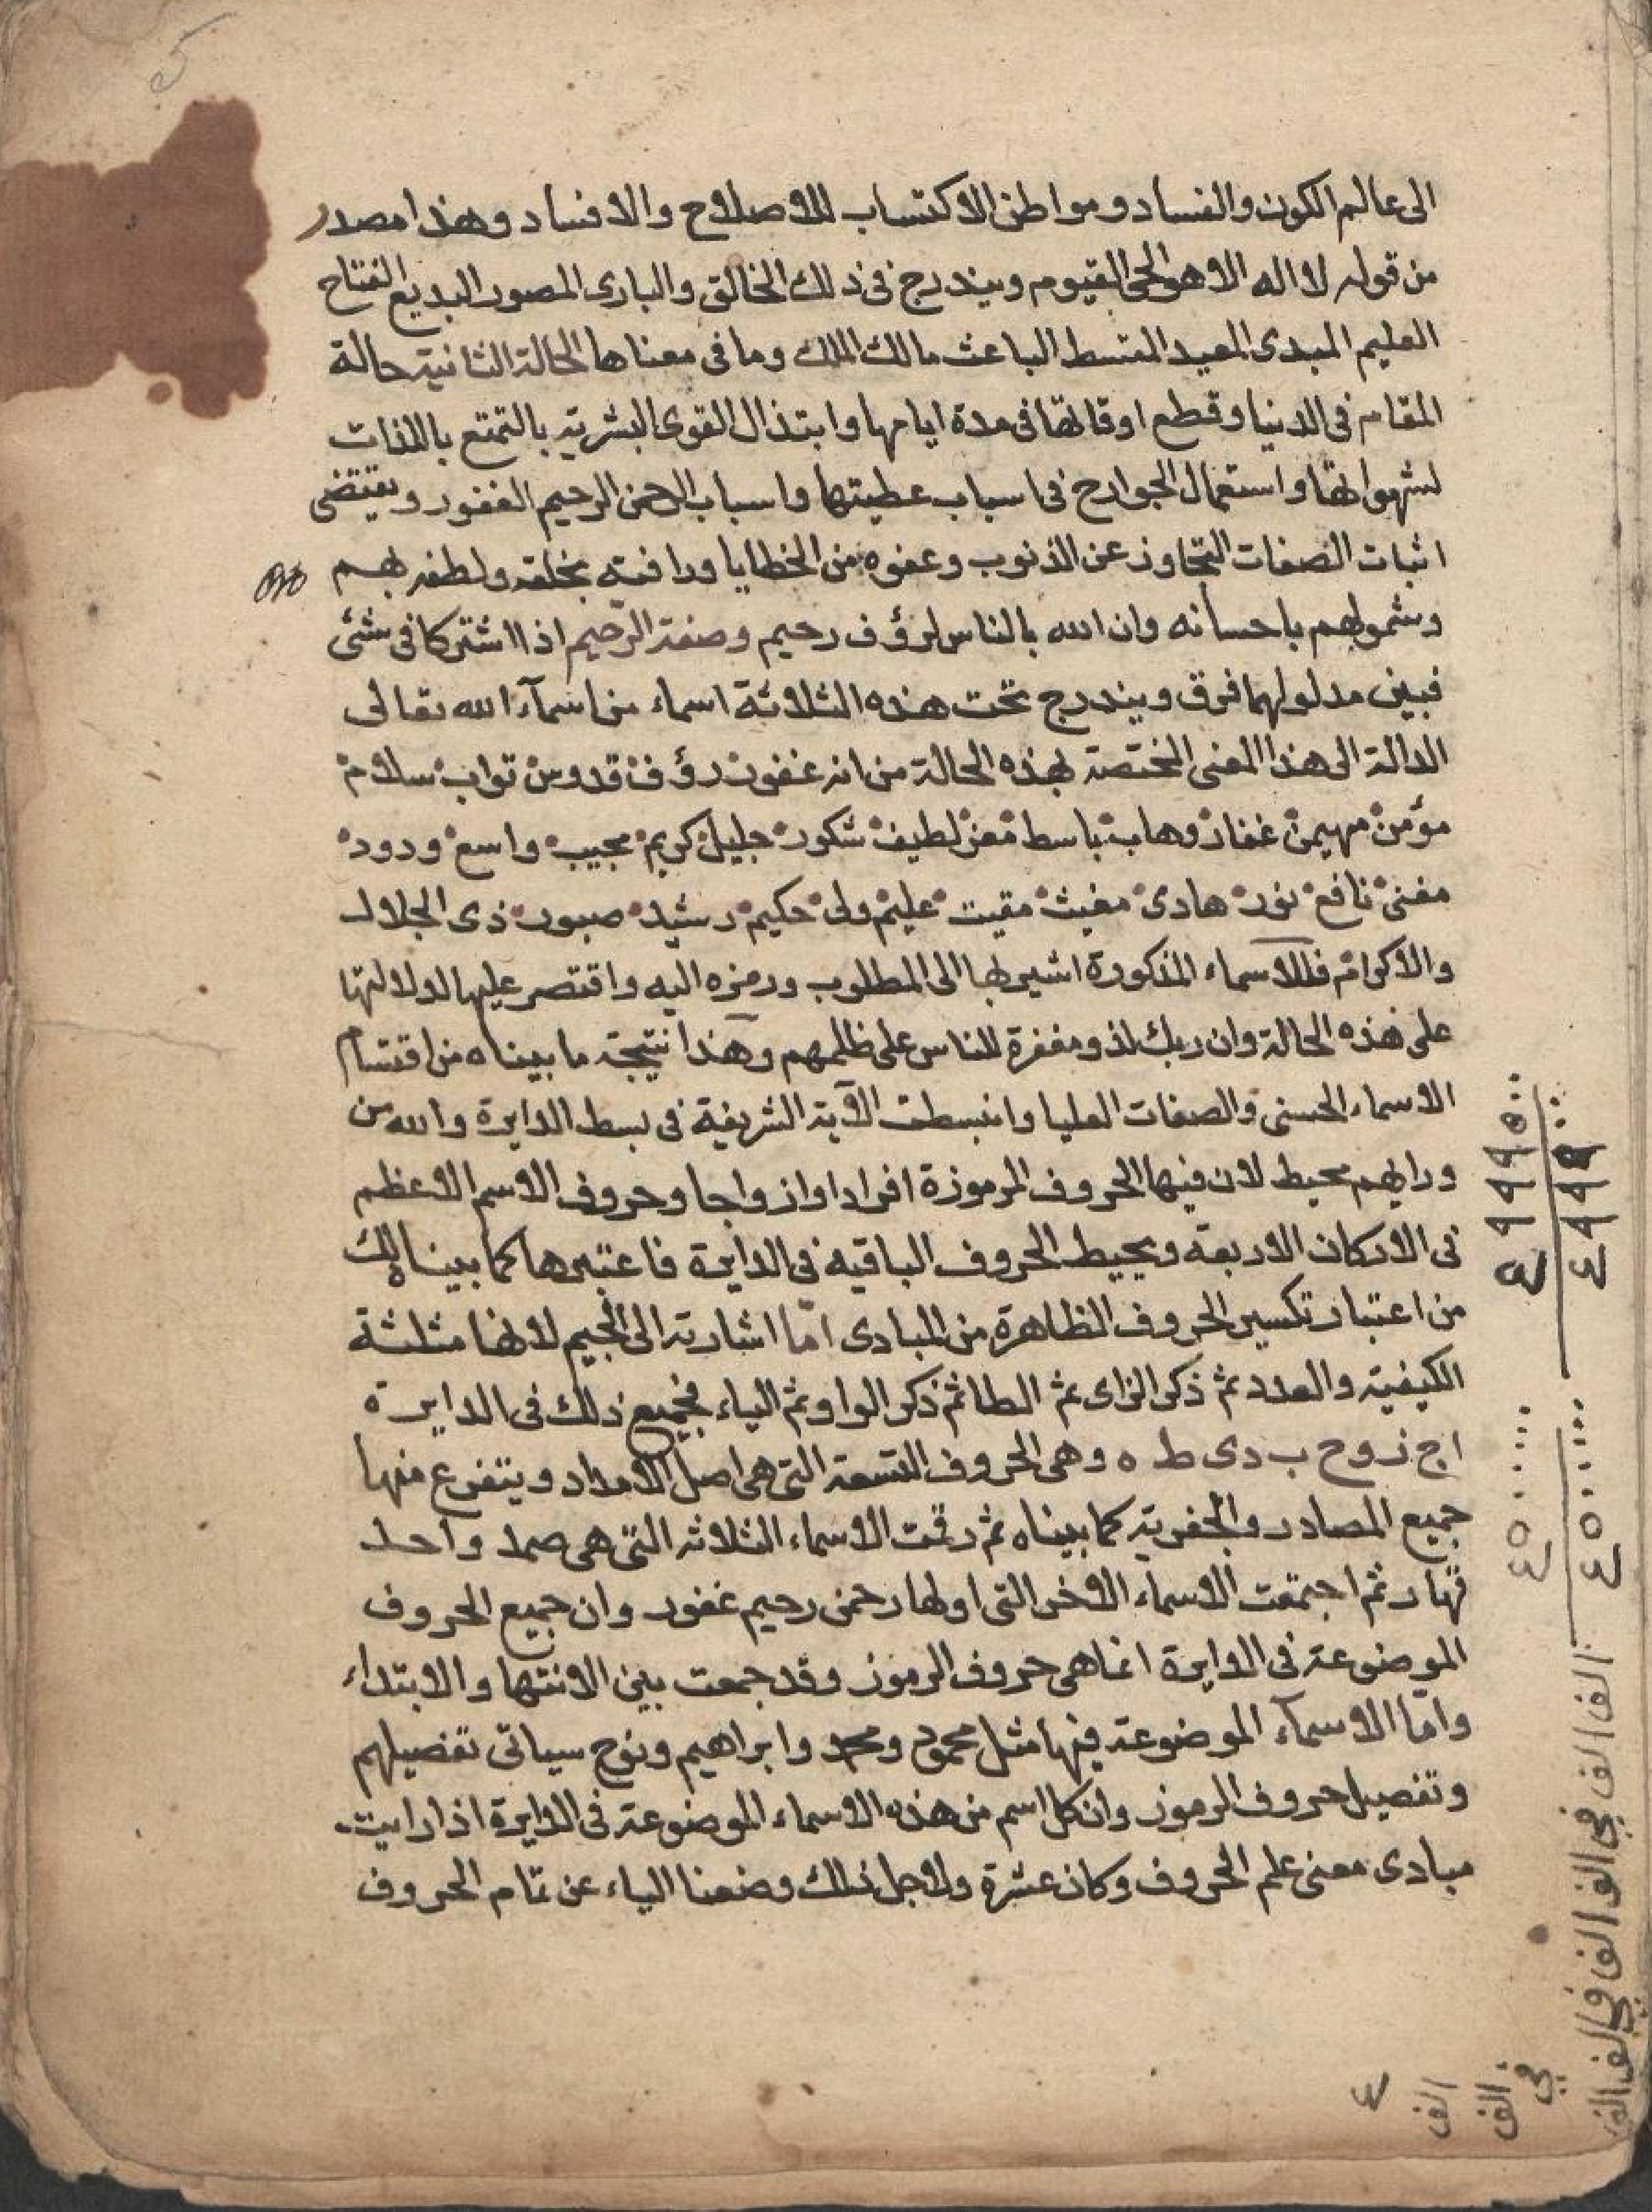 5
الى عالم الكون والفساد ومواطن الاكتساب للاصلاح والافساد وهذا مصدر
من قوله لا اله الا هو الحى القيوم ويندرج فى ذلك الخالق والبارى المصور البديع الفتاح
العليم المبدى المعيد المقسط الباعث مالك الملك وما فى معناها الحالة الثانية حالة
المقام فى الدنيا وقطع اوقاتها فى مدة ايامها وابتذال القوى البشرية بالتمتع باللذات
لشهواتها واستعمال الجوارح فى اسباب عطيتها واسباب الرحمن الرحيم الغفور ويقتضى
اثبات الصفات التجاوز عن الذنوب وعفوه من الخطايا ورافته بخلقه ولطفه بهم
وشمولهم باحسانه وان الله بالناس لرؤف رحيم وصفة الرّحيم اذا اشتركا فى شئ
فبين مدلولهما فرق ويندرج تحت هذه الثلاثة اسماء من اسمآء الله تعالى
الدالة الى هذا المعنى المختصة بهذه الحالة من انه غفور رؤف قدوس تواب سلام
مؤمن مهيمن غفار وهاب باسط معز لطيف شكور جليل كريم مجيب واسع ودود
مغنى نافع نور هادى مغيث مقيت عليم ولى حكيم رشيد صبور ذى الجلال
والاكرام فالاسماء المذكورة اشير بها الى المطلوب ورمزه اليه واقتصر عليها لدلالتها
على هذه الحالة وان ربك لذو مغفرة للناس على ظلمهم وهذا نتيجة ما بيناه من اقتسام
الاسماء الحسنى والصفات العليا وانبسطت الآية الشريفة فى بسط الدايرة والله من
ورايهم محيط لان فيها الحروف المرموزة افرادا وازواجا وحروف الاسم الاعظم
فى الاركان الاربعة ويحيط الحروف الباقيه فى الدايرة فاعتبرها كما بيناه لك
من اعتبار تكسير الحروف الظاهرة من المبادى امّا اشارته الى الجيم لانها مثلثة
الكيفية والعدد ثم ذكر الزاى ثم الطا ثم ذكر الواو ثم الياء فجميع ذلك فى الدايرة
ا ج ز و ح ب د ى ط ه وهى الحروف التسعة التى هى اصل الامداد ويتفرع منها
جميع المصادر والجفرية كما بيناه ثم رقمت الاسماء الثلاثه التى هى صمد واحد
قهار ثم اجتمعت الاسماء الاخر التى اولها رحمن رحيم غفور وان جميع الحروف
الموضوعة فى الدايرة انما هى حروف الرموز وقد جمعت بين الانتها والابتداء
وامّا الاسمآء الموضوعة فيها مثل محمود ومحمد وابراهيم ونوح سياتى تفصيلهم
وتفصيل حروف الرموز وان كل اسم من هذه الاسماء الموضوعة فى الدايرة اذا رايت
مبادى معنى علم الحروف وكان عشرة ولاجل ذلك وضعنا الياء عن تمام الحروف
الف الف في الف الف في الف الف
في
الف
الف